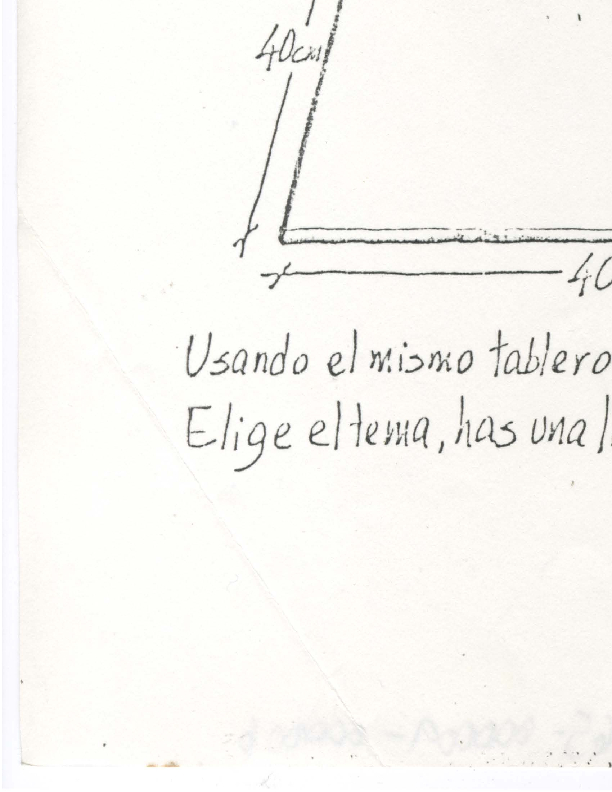 40cm
40
Usando el mismo tablero
Elige el tema, has una